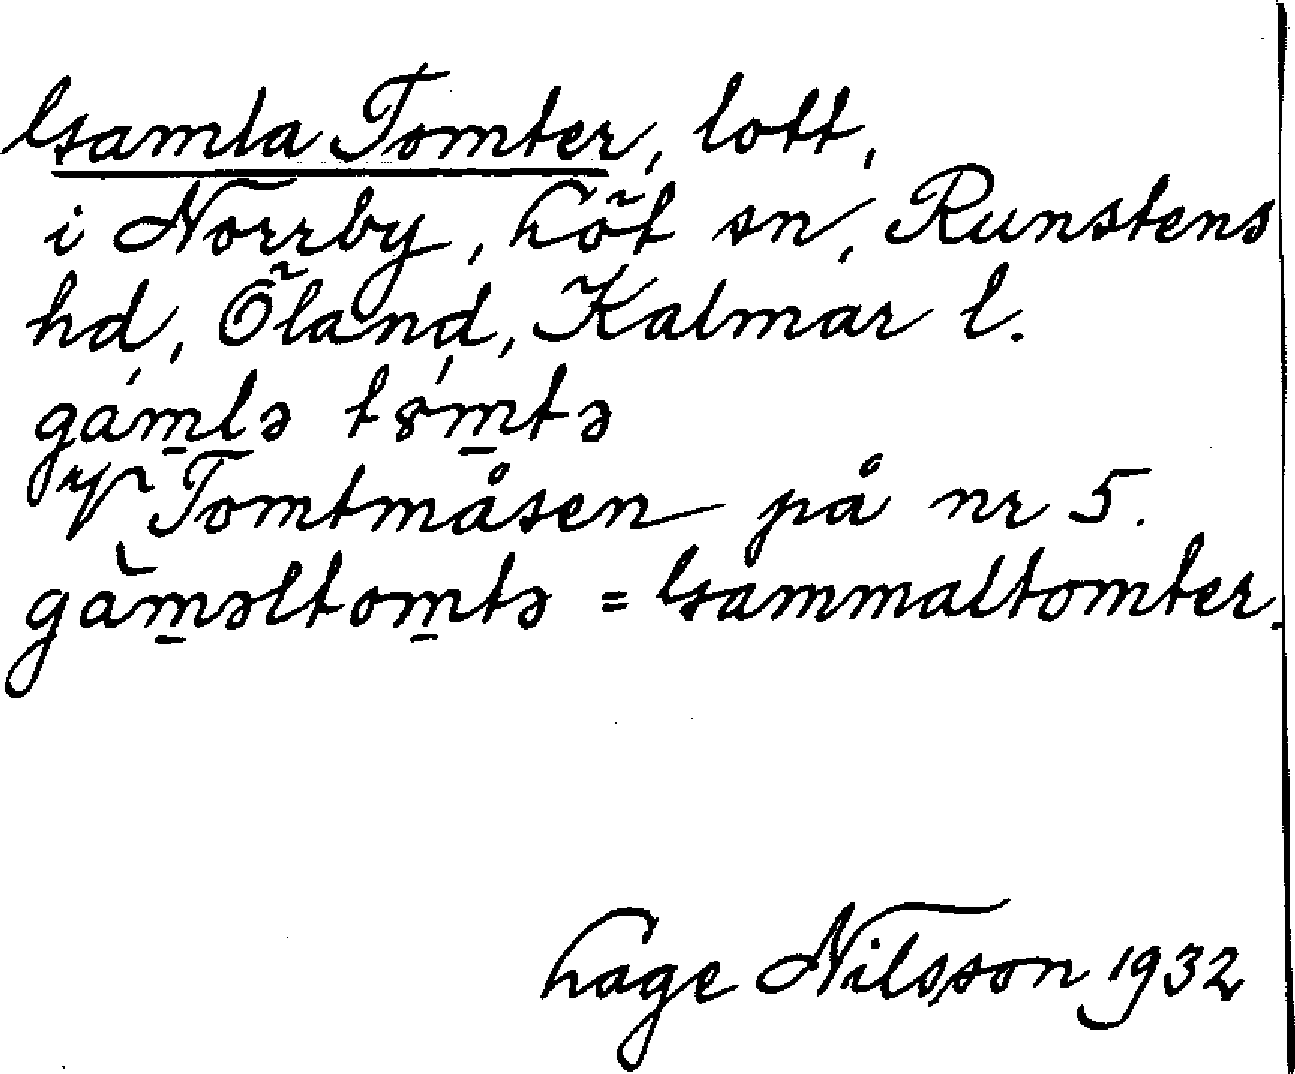 Gamla Tomter, lott,
i Norrby, Löt sn, Runstens
hd, Öland, Kalmar l.
gám̲l̲ə t8́m̲tə
V Tomtmåsen på nr 5.
gàm̲əltom̲tə = Gammaltomter.
Lage Nilsson 1932